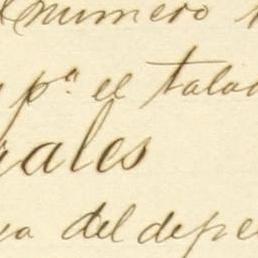 numero
pª el talad
ales
del depe